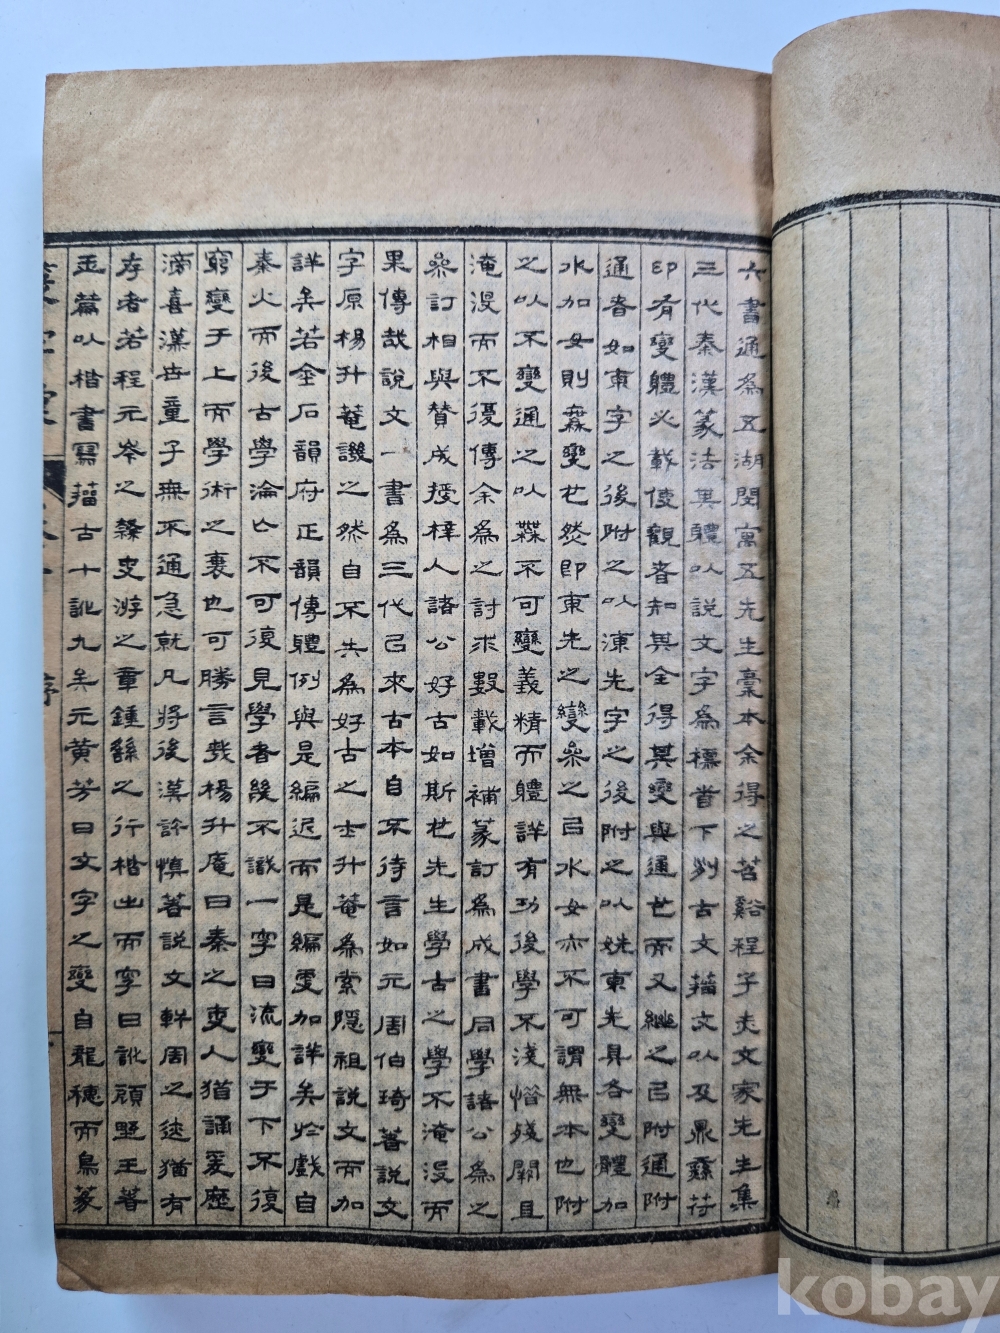 六書通為五湖閔寓五先生稾本余得之苕谿程子炎文家先生集
三代秦漢篆法其體以說文字為標首下列古文籀文以及鼎彝符
印有變體必載俾觀者知其全得其變與通也而又繼之㠯附通附
通者如東字之後附之以涷先字之後附之以姺東先具各變體加
水加女則森變也然即東先之變參之㠯水女亦不可謂無本也附
之以不變通之以襍不可變義精而體詳有功後學不淺惜殘闕且
淹沒而不復傳余為之討求數載增補篆訂為成書同學諸公為之
參訂相與贊成授梓人諸公好古如斯也先生學古之學不淹沒而
果傳哉說文一書為三代㠯來古本自不待言如元周伯琦著說文
字原楊升菴譏之然自不失為好古之士升菴為索隱祖說文而加
詳矣若金石韻府正韻傳體例與是編近而是編更加詳矣於戲自
秦火而後古學淪亡不可復見學者幾不識一字曰流變于下不復
窮變于上而學術之裏也可勝言哉楊升庵曰秦之吏人猶誦爰歷
滂喜漢世童子無不通急就凡將後漢許慎著說文幹周之迹猶有
存者若程元岑之隸史游之章鍾繇之行楷出而字曰訛頎野王著
玉篇以楷書寫籀古十訛九矣元黃芳曰文字之變自龍穗而鳥篆
序
kobay